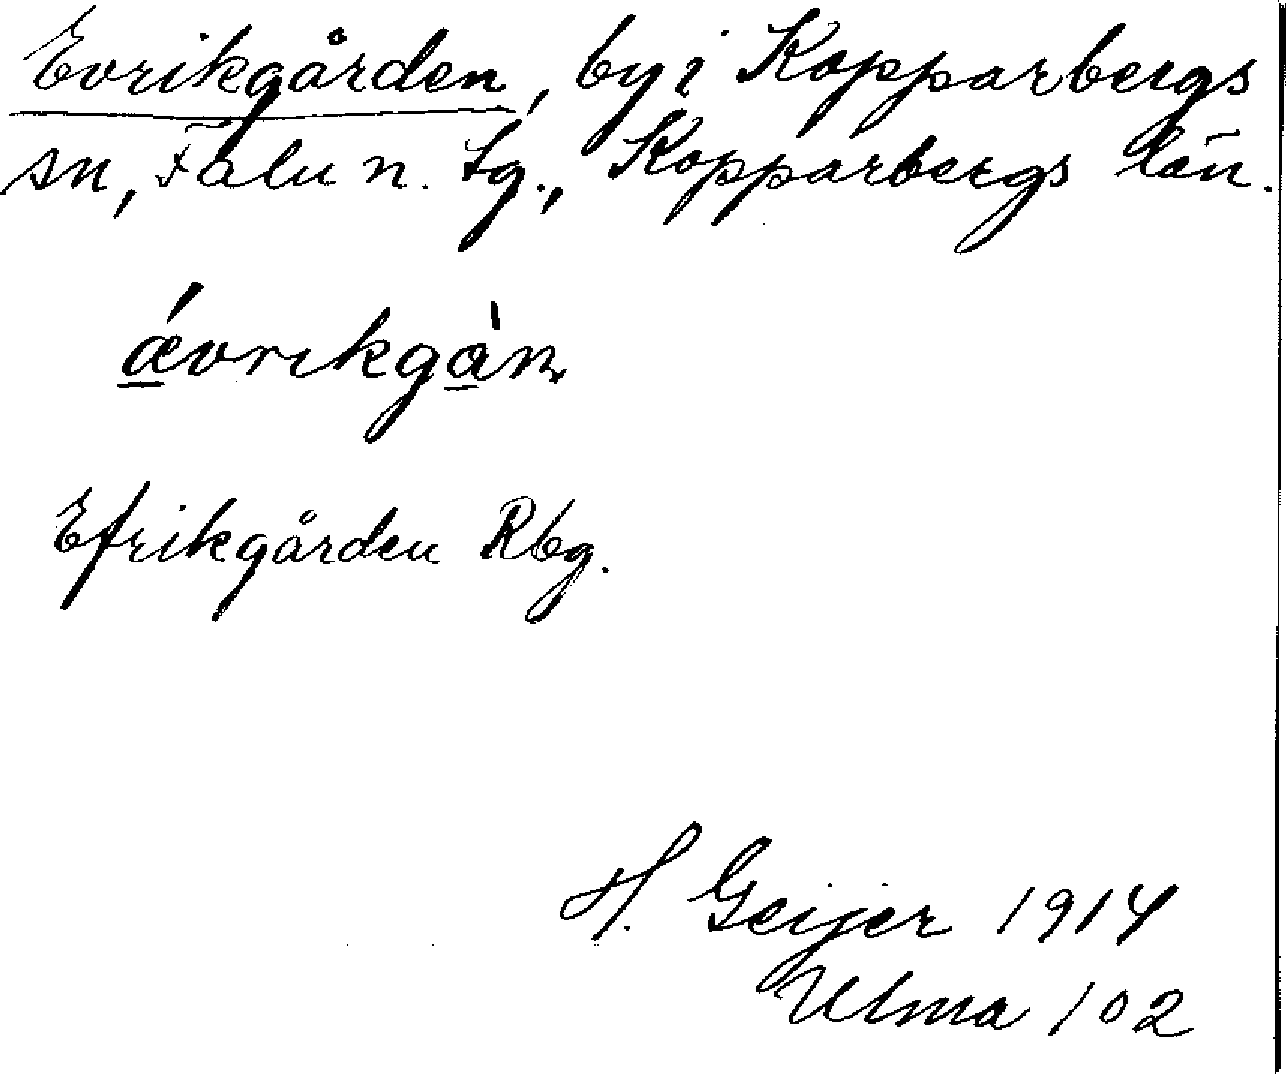 Evrikgården, by i Kopparbergs
sn, Falu n. tg., Kopparbergs län.
ǽvrikgàn
Efrikgården Rbg.
H. Geijer 1914
Ulma 102